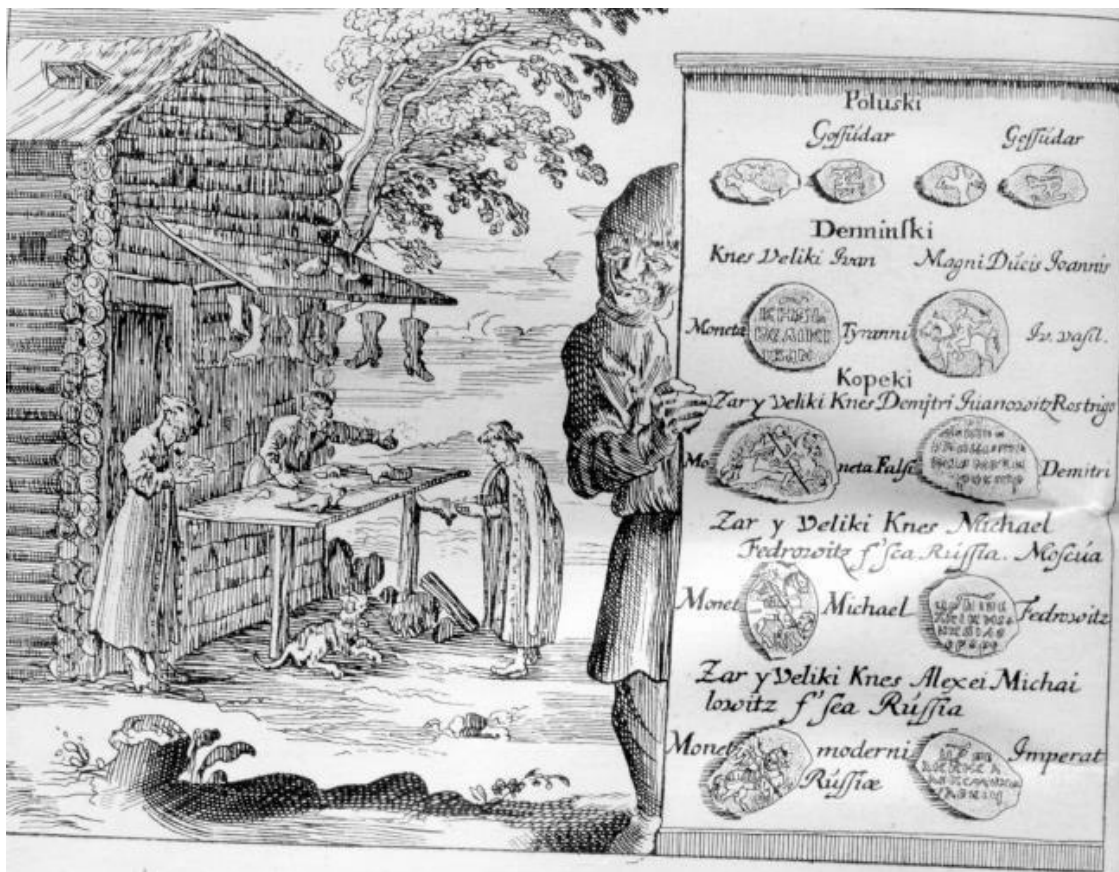 Poluski
Goſſúdar Goſſúdar
Derminſki
Knes Veliki Ivan Magni Dúcis Joannis
Moneta Tyranni Iv. vaſil.
КНЯЗ
ВЕЛИКІ
ІВАН
Kopeki
Zar y Veliki Knes Demĳtri Juanowitz Rostrigo
Mo neta Falſi Demitri
Zar y Veliki Knes Michael
Fedrowitz f'sea Rúſſia. Moscúa
Monet Michael Fedrowitz
Zar y Veliki Knes Alexei Michai
lowitz f'ſea Rúſſia
Monet moderni Imperat
Rúſſiæ